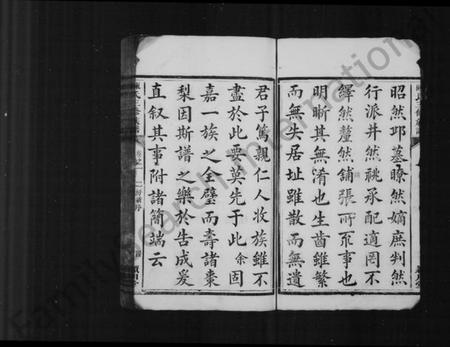 昭然邱墓瞭然嫡庶判然
行派井然祧承配適罔不
繹然釐然鋪張所不事也
明晰其無淆也生齒雖繁
而無失居址雖散而無遺
君子篤親仁人收族雖不
盡於此要莫先于此余固
嘉一族之全璧而壽諸棗
梨因斯譜之樂於告成爰
直叙其事附諸簡端云
FamilySearch International